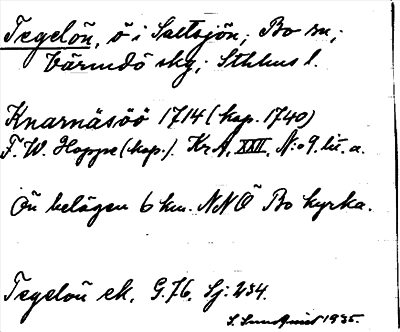 Tegelön, ö i Saltsjön; Bo sn;
Värmdö skg; Sthlms l.
Knarnäsöö 1714 (kop. 1740)
F. W. Hoppe (kop.). KrA, XXII, N:o 9. lit. a.
Ön belägen 6 km. NNÖ Bo kyrka.
Tegelön ek. G.76. Sj: 254.
S. Sundquist 1935.